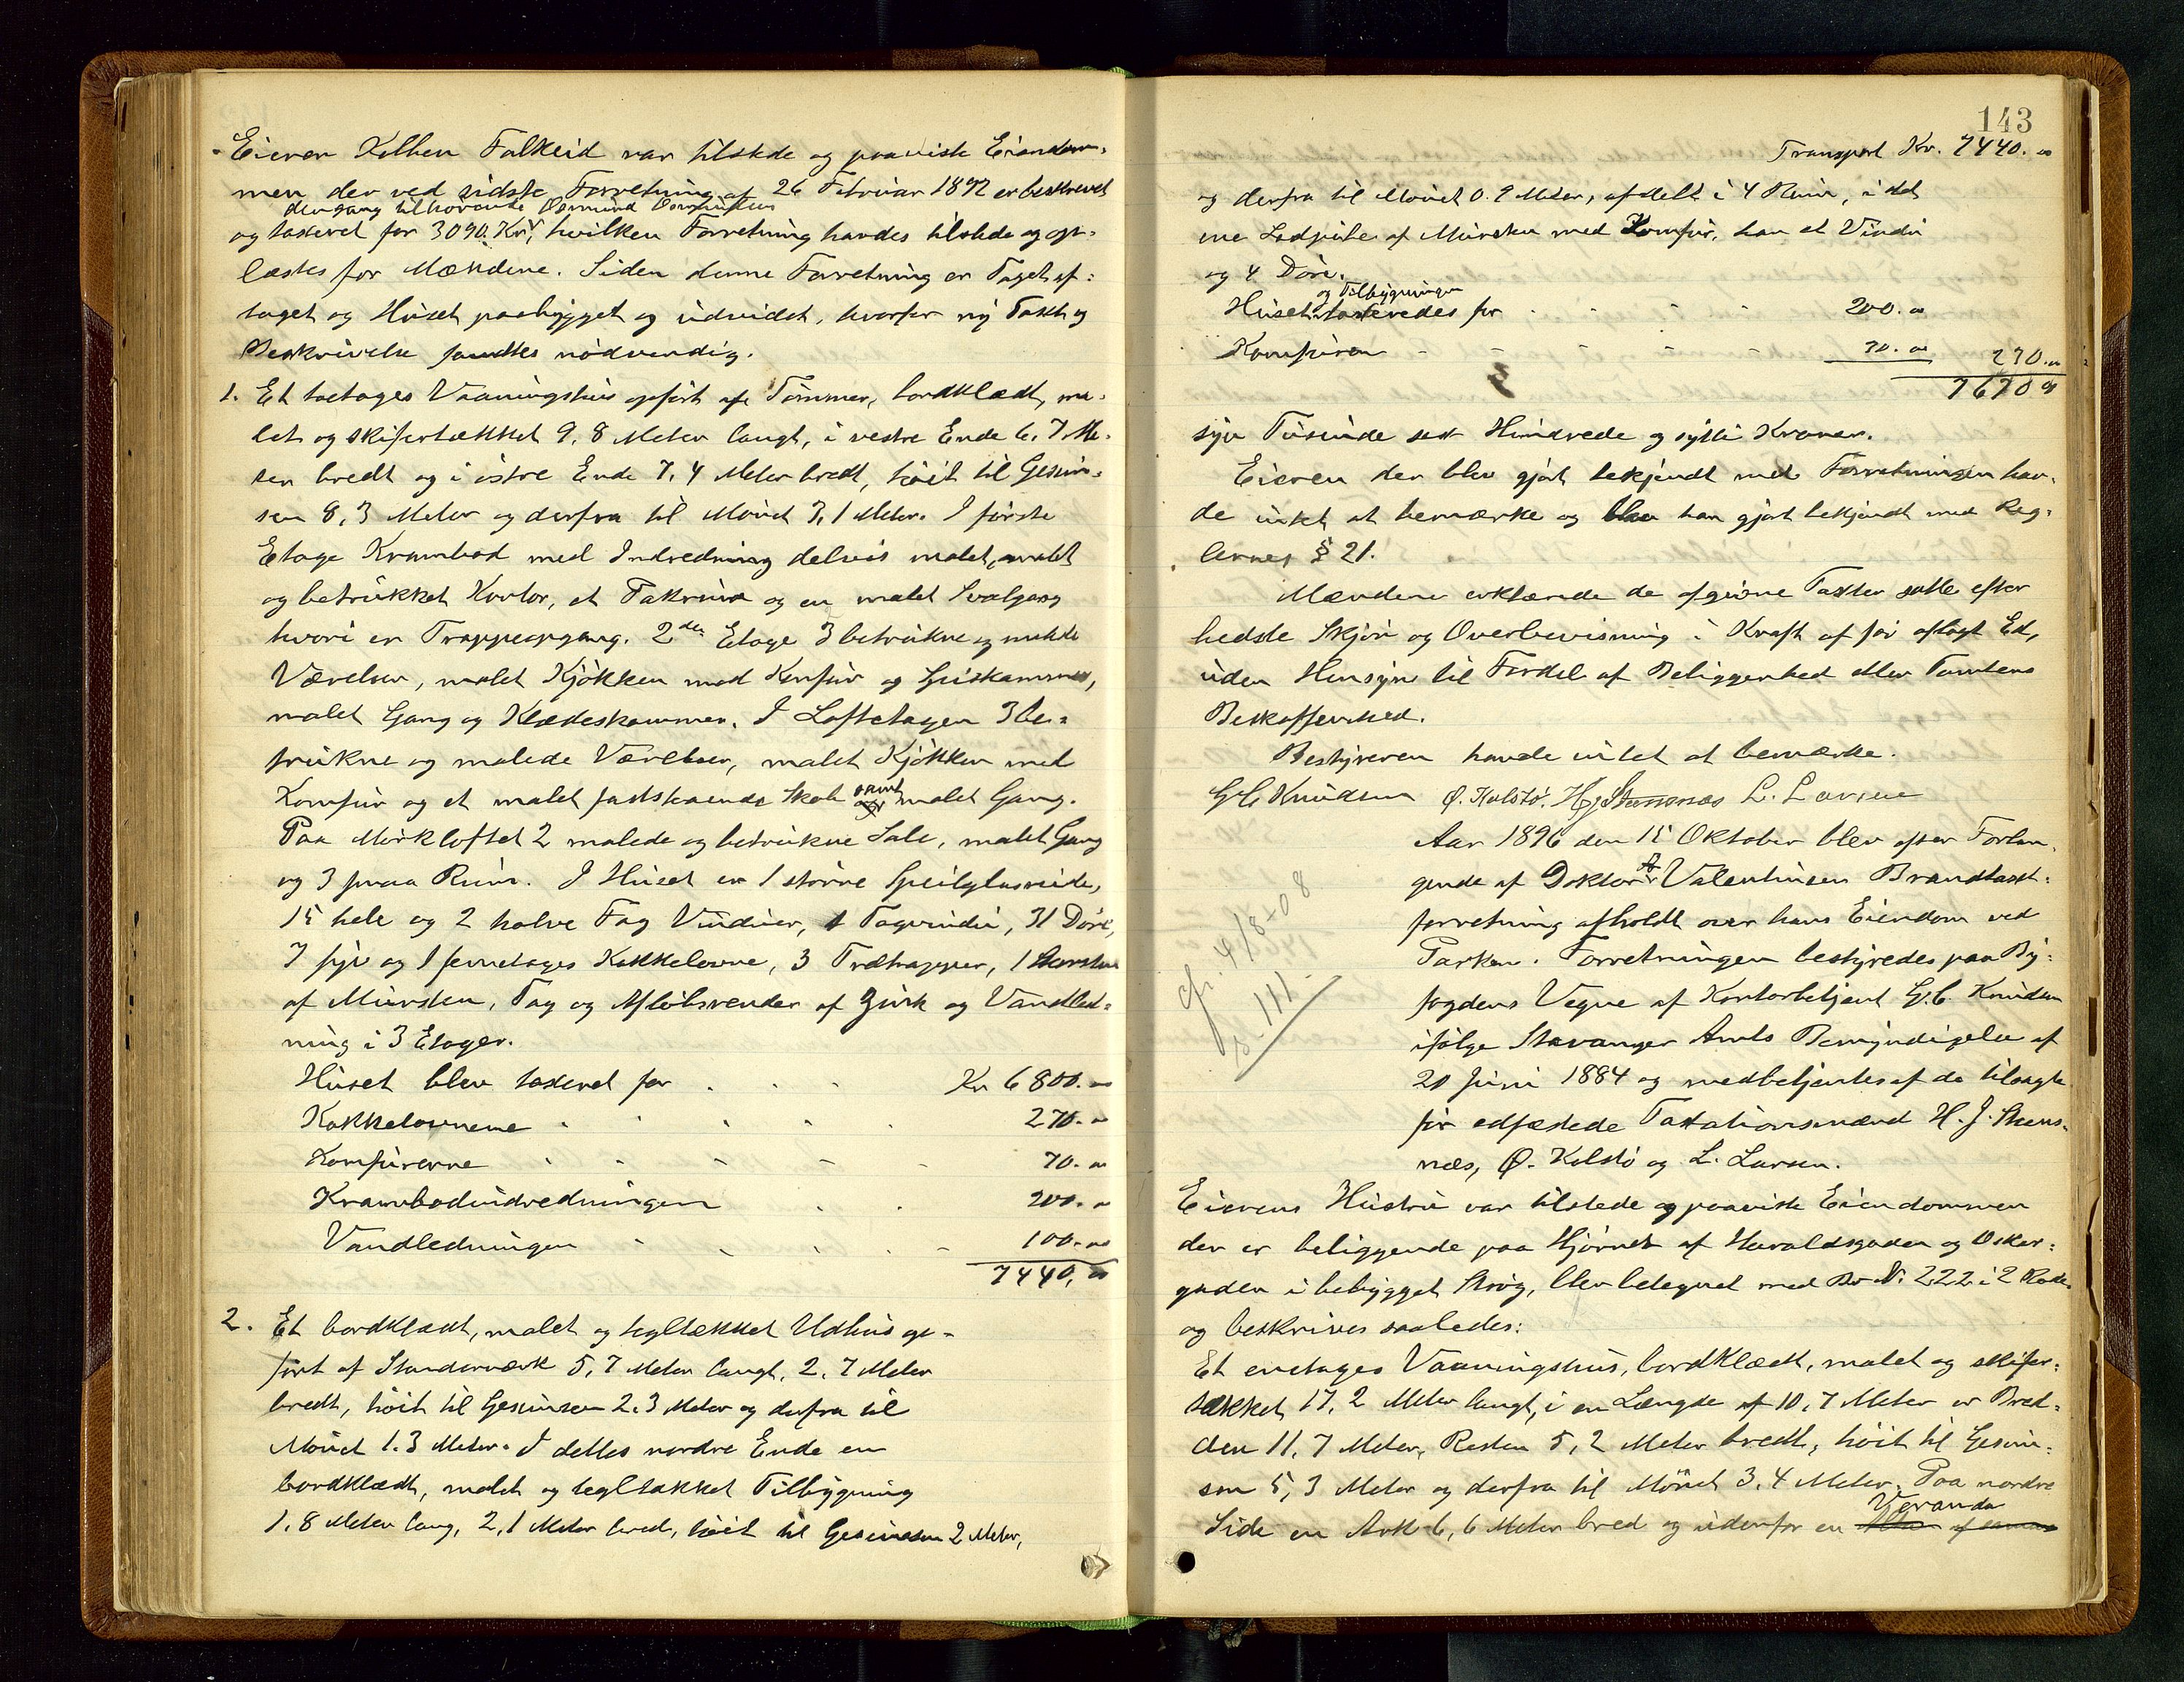 Eieren Kolben Falkeid var tilstede og paaviste Eiendom-
men der ved sidste Forretning af 26 Februar 1892 er beskrevet
den gang tilhörende Osmund
og taxeret for 3090 Kr, hvilken Forretning havdes tilstede og op-
læstes for Mændene. Siden denne Forretning er Taget af-
taget og Huset paabygget og udvidet, hvorfor ny Taxt og
Beskrivelse fandtes nödvendig.
1. Et toetages Vaaningshus opfört af Tömmer, bordklædt, ma-
let og skifertækket 9,8 Meter langt, i vestre Ende 6,7 Me-
ter bredt og i östre Ende 7,4 Meter bredt, höit til Gesim-
sen 8,3 Meter og derfra til Mönet 3,1 Meter. I förste
Etage Krambod med Indredning delvis malet, malet
og betrukket Kontor, et Pakrum og en malet Svalgang
hvori er Trappeopgang. 2den Etage 3 betrukne og malede
Værelser, malet Kjökken med Komfur og Spiskammer,
malet Gang og Klædeskammer. I Loftetagen 3 be-
trukne og malede Værelser, malet Kjökken med
Komfur og et malet faststaaende Skab samt malet Gang.
Paa Mörkloftet 2 malede og betrukne Sale, malet Gang
og 3 smaa Rum. I Huset er 1 större Speilglasrude,
15 hele og 2 halve Fag Vinduer, 1 Tagvindu, 31 Döre,
7 og 1 femetages Kakkelovne, 3 Trætrapper, 1 Skorsten
af Mursten, Tag og Aflöbsrender af Zink og Vandled-
ning i 3 Etager.
Huset blev taxeret for Kr 6800.00
Kakkelovnene 270.00
Komfurerne 70.00
Krambodindredningen 200.00
Vandledningen 100.00
7440,00
2. Et bordklædt, malet og tegltækket Udhus op-
fört af Standerværk 5,7 Meter langt, 2,7 Meter
bredt, höit til Gesimsen 2.3 Meter og derfra til
Mönet 1.3 Meter. I dettes nordre Ende en
bordklædt, malet og tegltækket Tilbygning
1,8 Meter lang, 2,1 Meter bred, höit til Gesimsen 2 Meter,
143
Transport Kr. 7440.00
og derfra til Mönet 0.9 Meter, afdelt i 4 Rum, i det
ene Ladpibe af Mursten med Komfur, har et Vindu
og 4 Döre.
og Tilbygningen
Huset taxeredes for 200.00
Komfuren 30.00 230.00
7670 00
syv Tusinde sex Hundrede og sytti Kroner.
Eieren der blev gjort bekjendt med Forretningen hav-
de intet at bemærke og blev han gjort bekjendt med Reg-
lernes § 21.
Mændene erklærede de afgivne Taxter satte efter
bedste Skjön og Overbevisning i Kraft af för aflagt Ed,
uden Hensyn til Fordel af Beliggenhed eller Tomtens
Beskaffenhed.
Bestyreren havde intet at bemærke.
G C Knudsen Ø. Kolstö. H J Steensnæs L. Larsen
Aar 1896 den 15 Oktober blev efter Forlan-
gende af Doktor Valentinsen Brandtaxt-
forretning afholdt over hans Eiendom ved
Parken. Forretningen bestyredes paa By-
fogdens Vegne af Kontorbetjent G. C. Knudsen
ifölge Stavanger Amts Bemyndigelse af
20 Juni 1884 og medbetjentes af de tilsagte
för edfæstede Taxationsmænd H. J. Steens-
næs, Ø. Kolstö og L. Larsen.
cfr 4/8-08
p. 111
Eierens Hustru var tilstede og paaviste Eiendommen
der er beliggende paa Hjörnet af Haraldsgaden og Oskar-
gaden i bebygget Strög, blev betegnet med Br N. 222 i 2 Rode
og beskrives saaledes:
Et enetages Vaaningshus, bordklædt, malet og skifer-
tækket 17,2 Meter langt, i en Længde af 10,7 Meter er Bred-
den 11,7 Meter, Resten 5,2 Meter bredt, höit til Gesim-
sen 5,3 Meter og derfra til Mönet 3,4 Meter. Paa nordre
Side en Ark 6,6 Meter bred og udenfor en Veranda